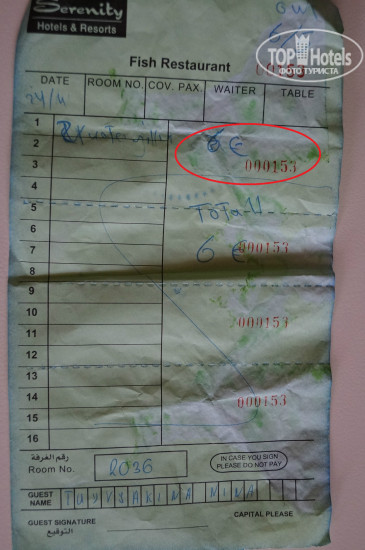 Serenity
Hotels & Resorts
TOPHotels
ФОТО ТУРИСТА
Fish Restaurant
DATE ROOM NO. COV. PAX. WAITER TABLE
24/4
1
2 6 €
3 000153
4
5 Total
6
7 6 € 000153
8
9
10 000153
11
12
13
14 000153
15
16
رقم الغرفة
Room No. 2036
IN CASE YOU SIGN
PLEASE DO NOT PAY
GUEST
NAME
NINA
GUEST SIGNATURE CAPITAL PLEASE
التوقيع